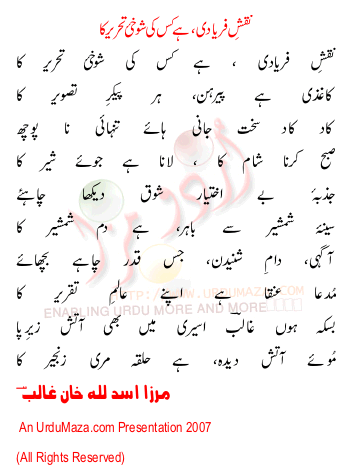 نقشِ فریادی، ہے کس کی شوخیٔ تحریر کا
نقش فریادی ، ہے کس کی شوخیٔ تحریر کا
کاغذی ہے پیرہن، ہر پیکرِ تصویر کا
کاد کاد سخت جانی ہائے تنہائی نا پوچھ
صبح کرنا شام کا ، لانا ہے جوئے شیر کا
جذبۂ بے اختیار شوق دیکھا چاہئے
سینۂ شمشیر سے باہر، ہے دم شمشیر کا
آگہی، دامِ شنیدن، جس قدر چاہے بچھائے
مُدعا عنقا ہے اپنے عالمِ تقریر کا
بسکہ ہوں غالبؔ اسیری میں بھی آتش زیرِپا
مُوئے آتش دیدہ، ہے حلقہ مری زنجیر کا
مرزا اسد للہ خان غالب
An UrduMaza.com Presentation 2007
(All Rights Reserved)
اُردو مزا
HTTP://WWW.URDUMAZA.COM
ENABLING URDU MORE AND MORE